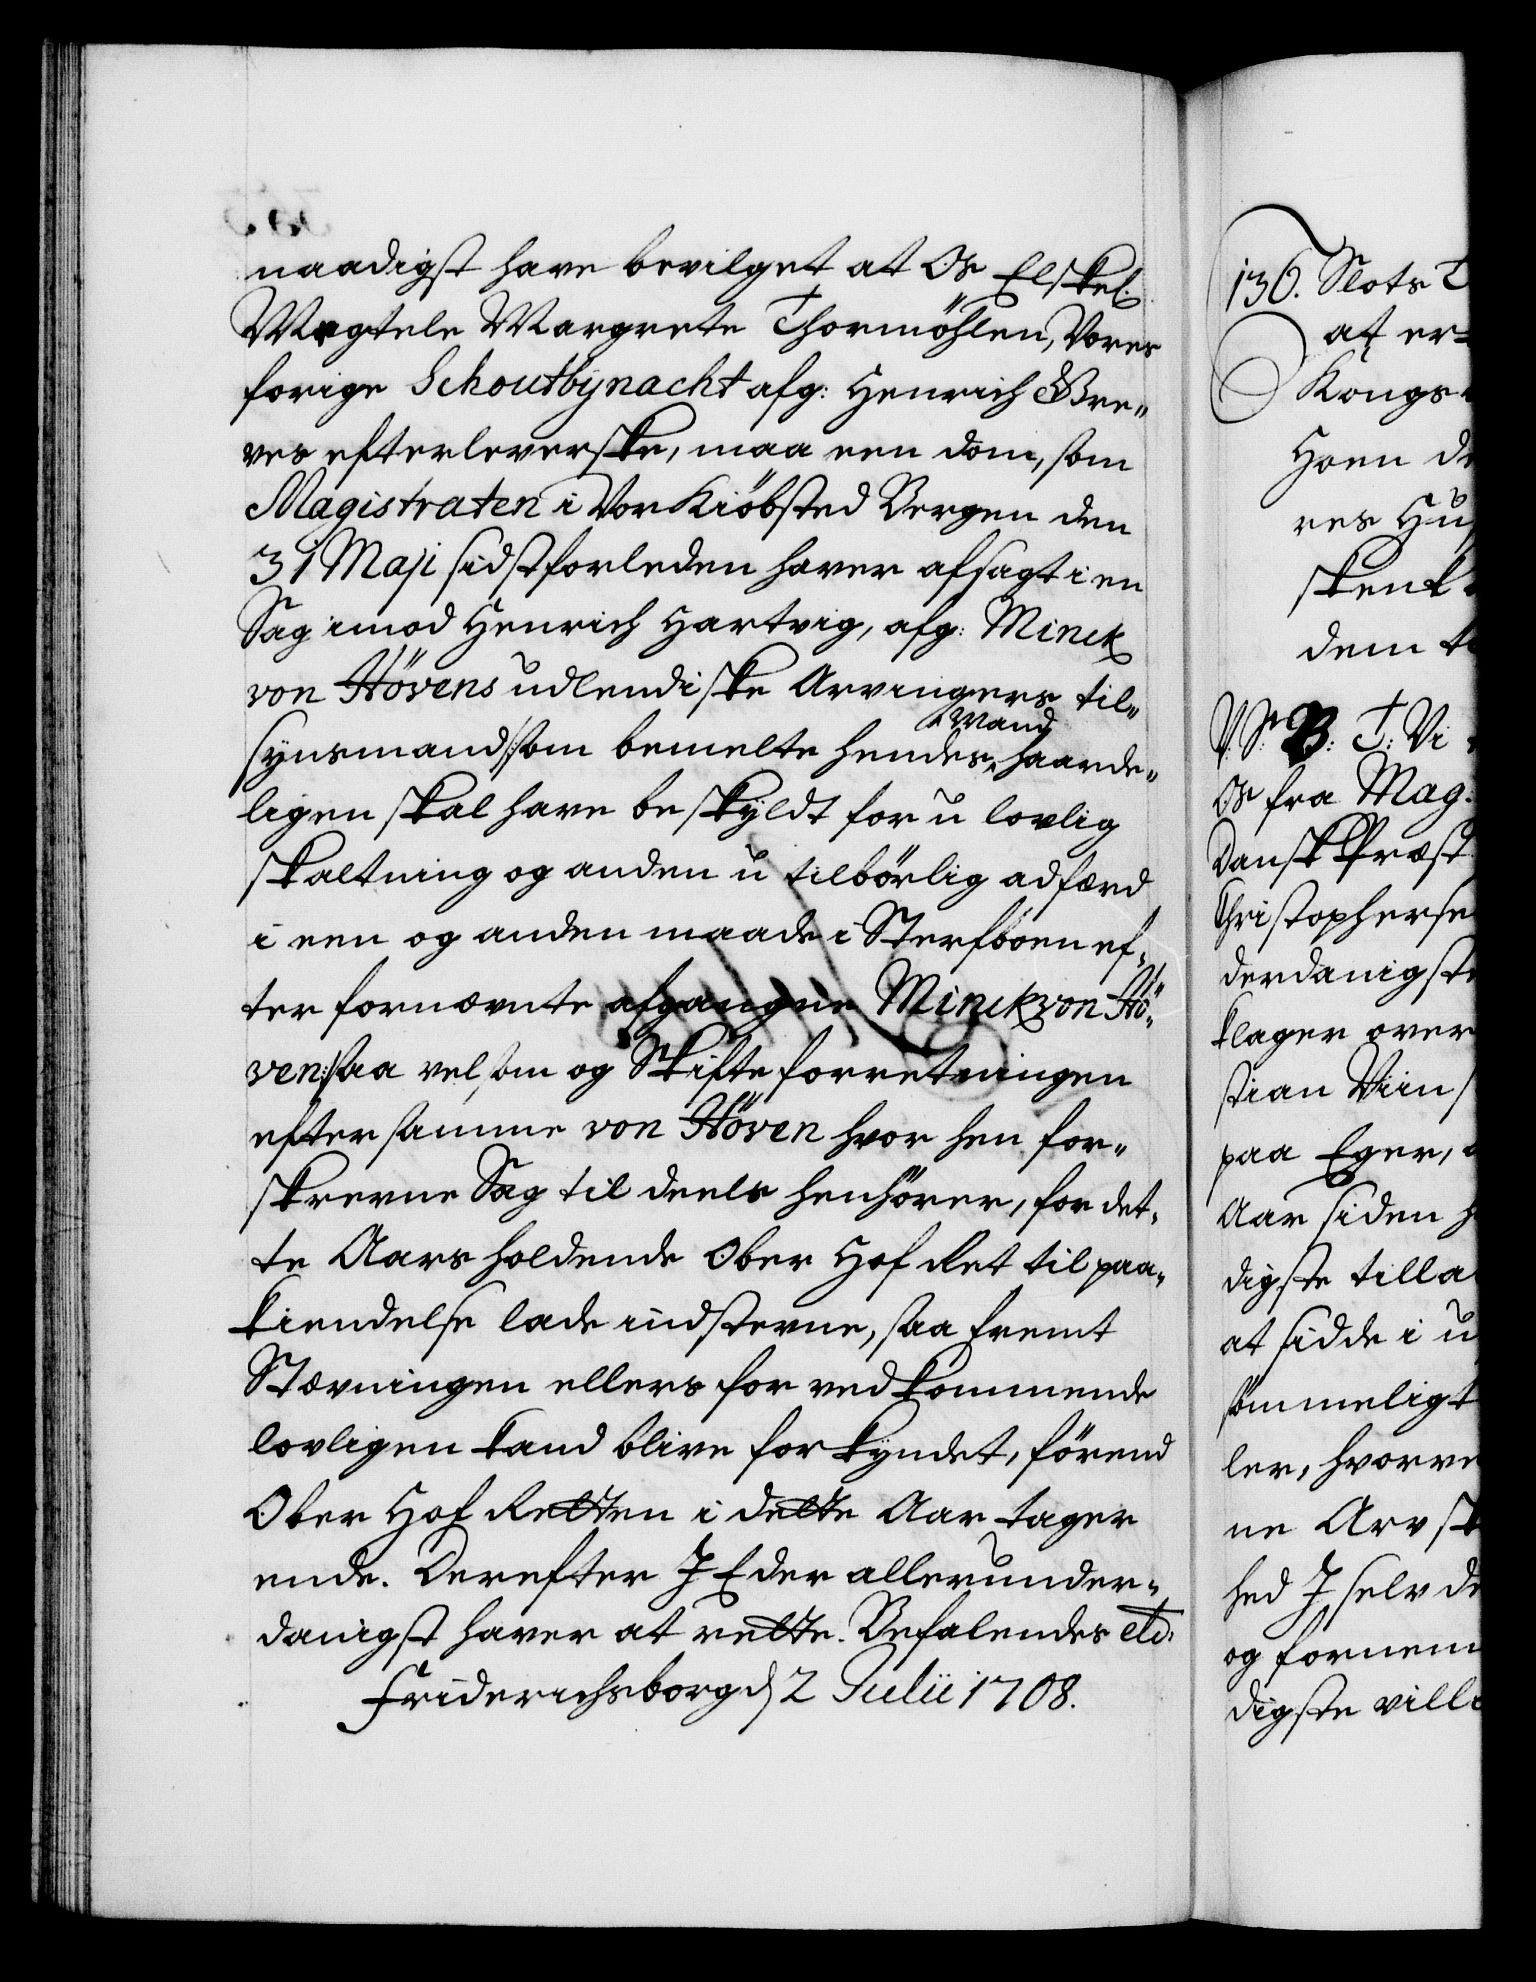 naadigst have bevilget at Os Elskel.
Magtele Margrete Thormöhlen, Vores
forige Schoutbynacht afg: Henrich Gre„
ves efterleverske, maa een dom, som
Magistraten i Vor Kiöbsted Bergen den
31 Maji sidstforleden haver afsagt i en
Sag imod Henrich Hartvig, afg: Minck
von Hövens udlendiske Arvingers til„
synsmand /:som bemelte hendes Mand haarde„
ligen skal have beskyldt for u lovlig
skaltning og anden u tilbörlig adfærd
i een og anden maade i Sterfboen ef„
ter fornævnte afgangne Minck von Hö„
ven:/ saa vel som og Skifte forretningen
efter samme von Höven hvor hen for„
skrevne Sag til deels henhörer, for det„
te Aars holdende Ober Hof Ret til paa„
kiendelse lade indstevne, saa fremt
Stævningen ellers for vedkommende
lovligen kand blive forkyndet, förend
Ober Hof Retten i dette Aar tager
ende. Derefter I Eder allerunder„
danigst haver at rette. Befalendes etc:
Friderichsborg d 2 Julii 1708.
136. Slots
at er=
Kongs
Hoen
res
skenk
dem
B: T: Vi
Os fra Mag:
Dansk Præst
Christopherse
derdanigste
klager over
stian
paa Eger,
Aar siden
digste tilla
at sidde i u
sömmeligt
ler, hvorve
ne Arv
hed I selv
og fornem
digste ville